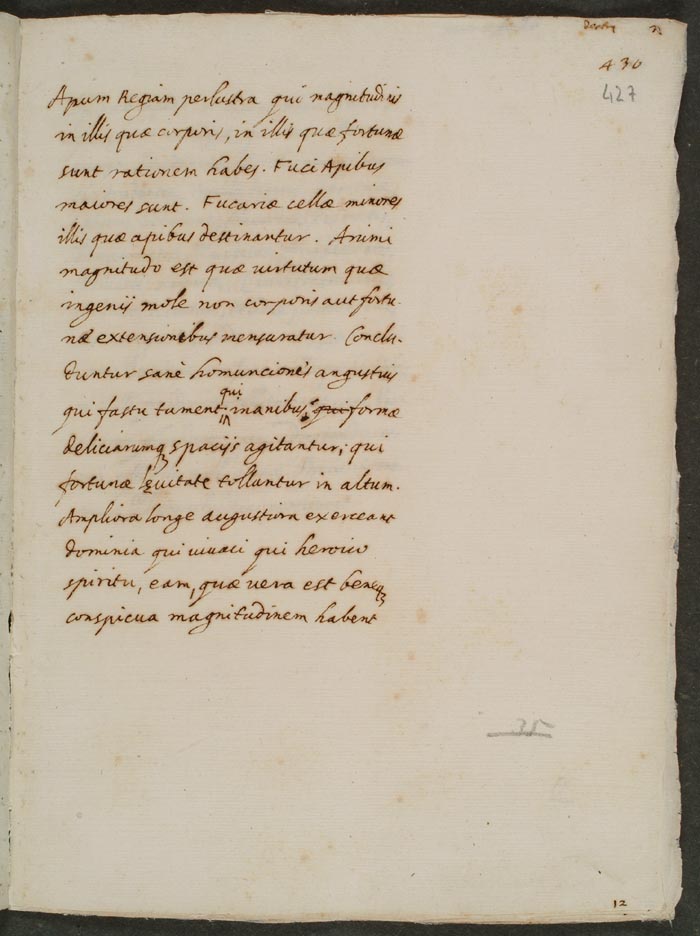 430
427
Apum Regiam perlustra qui magnitudinis
in illis quæ corporis, in illis quæ fortunæ
sunt rationem habes. Fuci Apibus
maiores sunt. Fucariæ cellæ minores
illis quæ apibus destinantur. Animi
magnitudo est quæ uirtutum quæ
ingenij mole non corporis aut fortu-
næ extensionibus mensuratur. Conclu-
duntur sanè homunciones angustijs
qui
qui fastu tument inanibus, qui formæ
deliciarumq spacijs agitantur; qui
fortunæ leuitate tolluntur in altum.
Ampliora longe augustiora exerceant
dominia qui uiuaci qui heroico
spiritu, eam, quæ uera est beneq
conspicua magnitudinem habent
35
12